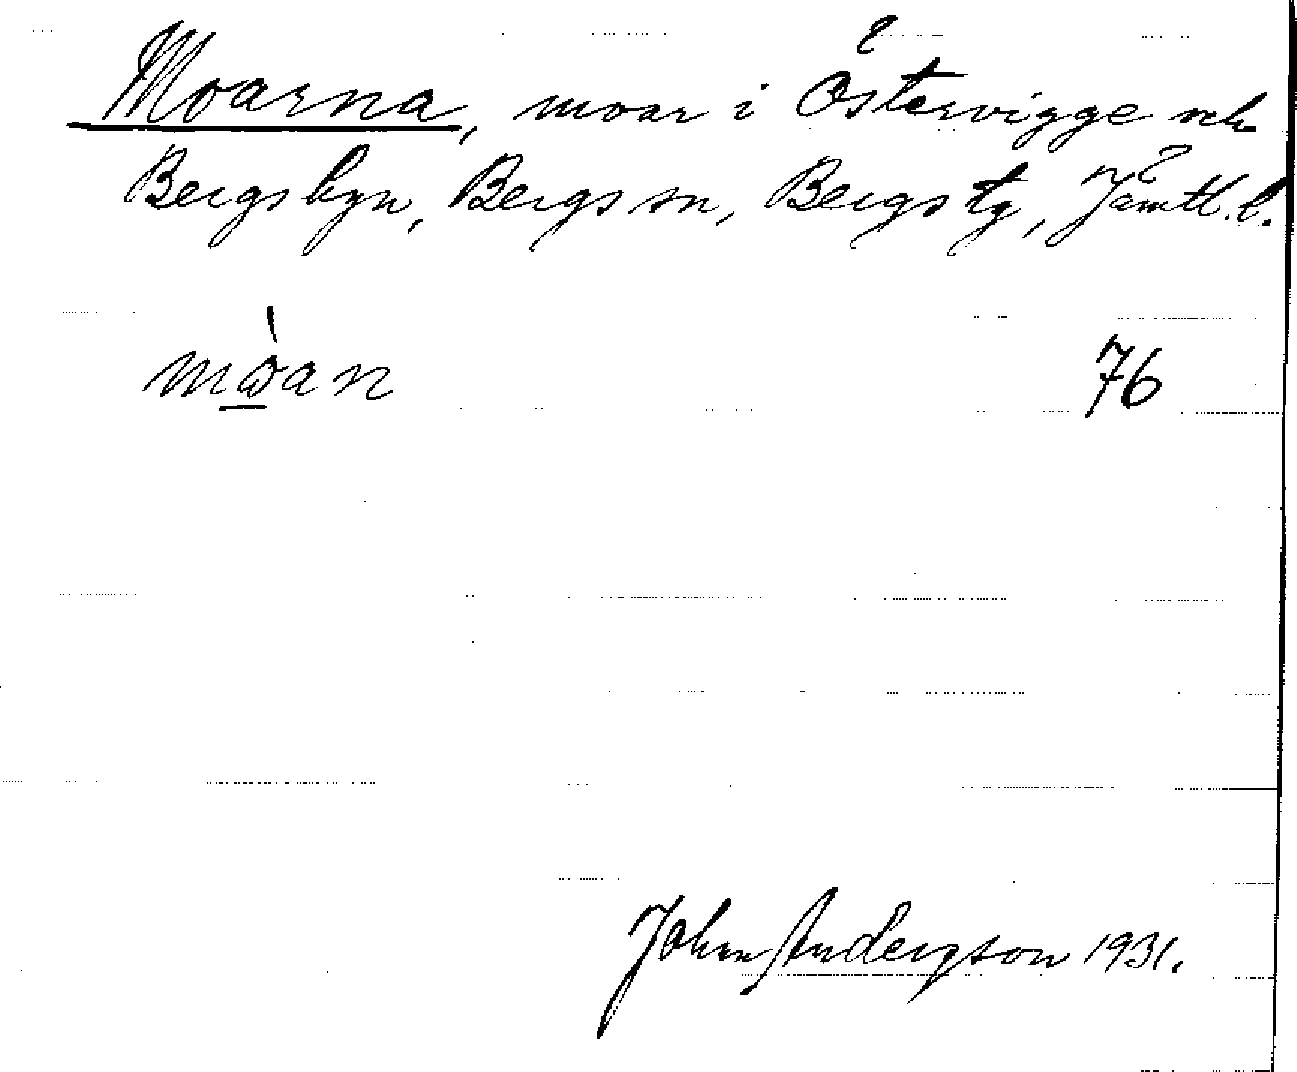 Moarna, moar i Östervigge och
Bergsbyn, Bergs sn, Bergs tg, Jämtl. l.
mòan 76
John Andersson 1931.